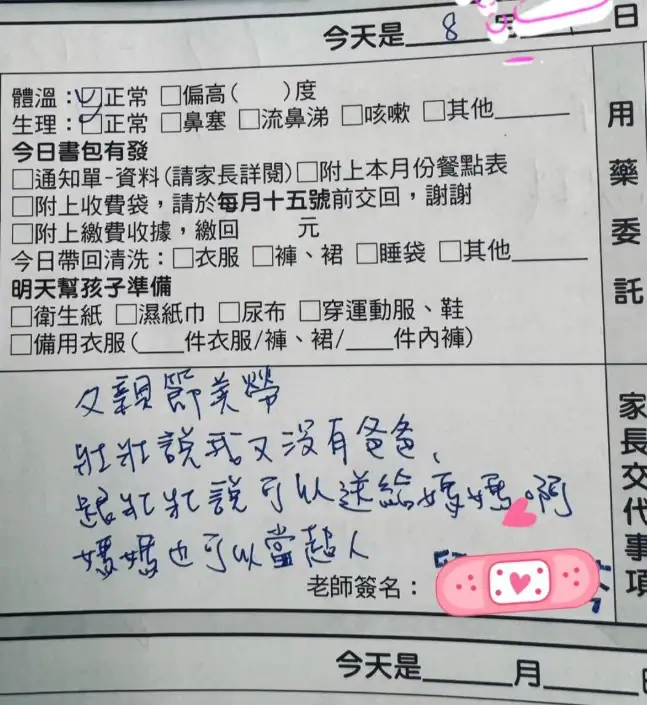 今天是 8 月 日
體溫：☑正常 □偏高( )度
生理：☑正常 □鼻塞 □流鼻涕 □咳嗽 □其他______
今日書包有發
□通知單-資料(請家長詳閱)□附上本月份餐點表
□附上收費袋，請於每月十五號前交回，謝謝
□附上繳費收據，繳回 元
今日帶回清洗：□衣服 □褲、裙 □睡袋 □其他______
明天幫孩子準備
□衛生紙 □濕紙巾 □尿布 □穿運動服、鞋
□備用衣服(___件衣服/褲、裙/___件內褲)
用藥委託
父親節美勞
壯壯說我又沒有爸爸、
跟壯壯說可以送給媽媽啊
媽媽也可以當超人
老師簽名：
家長交代事項
今天是_____月_____日